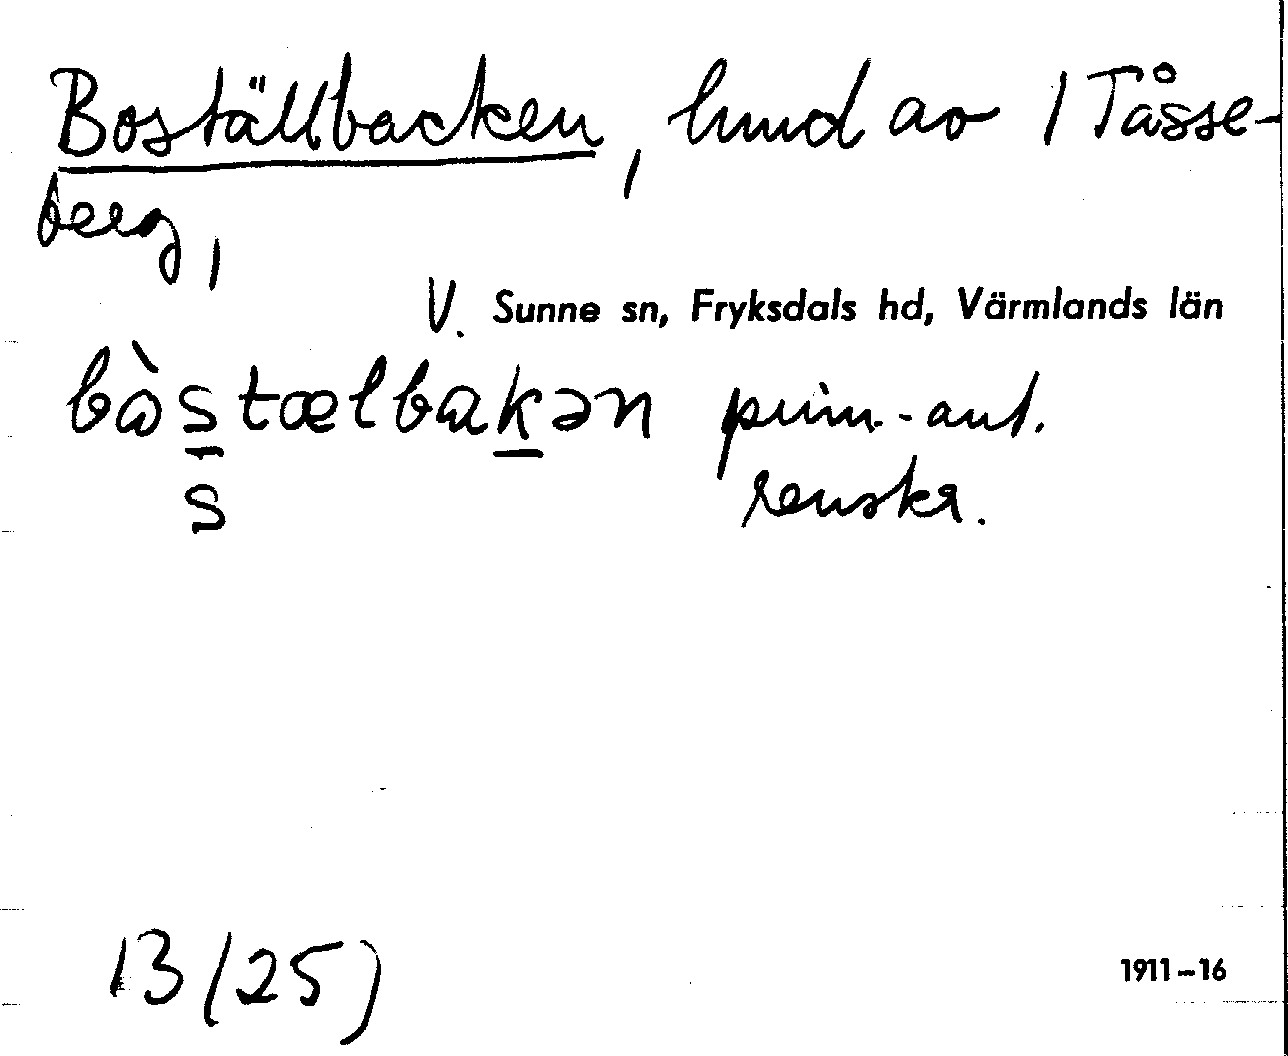 Boställbacken, lmd av 1 Tåsse-
berg,
V. Sunne sn, Fryksdals hd, Värmlands län
bòstælbakən prim.-ant.
s renskr.
13 (25) 1911-16